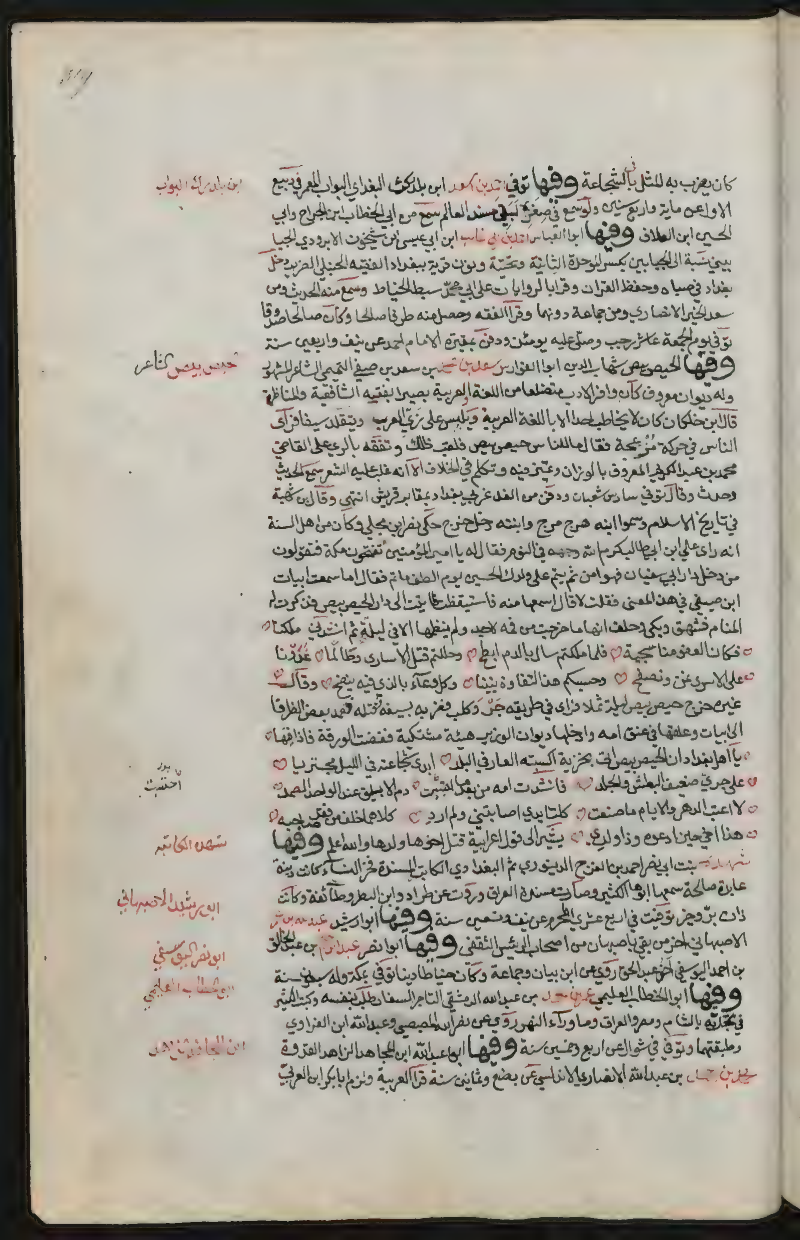 كان يضرب به المثل في الشجاعة وفيها توفي احمد بن ابن بلدكرك البغدادي البواب المعمر في ربيع
ابن بلدكرك البواب
الاول عن ماية واربع سنين ولو سمع في صغره لبقي مسند العالم سمع من ابي الخطاب بن الجراح وابي
الحسين ابن العلاف وفيها ابو العباس احمد بن ابي غالب ابن ابي عيسى ابن شيخون الابرودي الجبا
بيني نسبة الى الجبابين بكسر الموحدة الثانية وتحتية ونون قرية ببغداد الفقيه الحنبلي الضرير دخل
بغداد في صباه وحفظ القران وقرا بالروايات على ابي محمد سبط الخياط وسمع منه الحديث ومن
سعد الخير الانصاري ومن جماعة دونهما وقرا الفقه وحصل منه طرفا صالحا وكان صالحا صدوقا
توفي يوم الجمعة عاشر رجب وصلي عليه يومئذ ودفن بمقبرة الامام احمد عن نيف واربعين سنة
وفيها الحيص بيص شهاب الدين ابو الفوارس سعد بن محمد بن سعد بن صيفي التميمي الشاعر المشهور
حيص بيص الشاعر
وله ديوان معروف كان وافر الادب متضلعا من اللغة العربية بصيرا بفقيه الشافعية والمناظرة
قال ابن خلكان كان لا يخاطب احدا الا باللغة العربية ويلبس على زي العرب ويتقلد سيفا فراى
الناس في حركة مزعجة فقال ما للناس حيص بيص فلقب ذلك وتفقه بالري على القاضي
محمد بن عبد الكريم المعروف بالوزان وتكلم في الخلاف الا انه غلب عليه الشعر سمع الحديث
وحدث وقال توفي سادس شعبان ودفن من الغد غربي بغداد بمقابر قريش انتهى وقال ابن شهبة
في تاريخ الاسلام وسموا ابنه هرج مرج وابنته دخل خرج حكى نصر ابن مجلي وكان من اهل السنة
انه راى علي ابن ابي طالب كرم الله وجهه في النوم فقال له يا امير المؤمنين تفتحون مكة فتقولون
من دخل دار ابي سفيان فهو امن ثم يتم على ولدك الحسين يوم الطف ما تم فقال اما سمعت ابيات
ابن صيفي في هذا المعنى فقلت لا قال اسمعها منه فاستيقظت فاتيت الى دار الحيص بيص فذكرت له
المنام فشهق وبكى وحلف انها ما خرجت من فيه لاحد ولم ينظمها الا في ليلة ثم انشدني ملكنا
فكان العفو منا سجية فلما ملكتم سال بالدم ابطح وحللتم قتل الاسارى وطالما غدونا
على الاسرى نعف ونصفح وحسبكم هذا التفاوت بيننا وكل وعاء بالذي فيه ينضح وقال
غيره خرج حيص بيص ليلة ثملا فراى في طريقه جرو كلب فضربه بسيفه فقتله فعمد بعض الظرفا
الى ابيات وعلقها في عنق امه وادخلها ديوان الوزير هيئة مشتكية ففضت الورقة فاذا فيها
يا اهل بغداد ان الحيص بيص اتى بخزية اكسبته العار في البلد ابدى شجاعته في الليل مجتريا
على جري ضعيف البطش والجلد فانشدت امه من بعد ما احتسبت دم الابيلق عند الواحد الصمد
احتسبت
لا اعتب الدهر والايام ما صنعت كلتا يدي اصابتني ولم ارد كلاهما خلف من فقد صاحبه
هذا اخي حين ادعوه وذا ولدي يشير الى قول اعرابية قتل اخوها ولدها والله اعلم وفيها
شهدة الكاتبة
شهدة بنت ابي نصر احمد بن الفرج الدينوري ثم البغدادي الكاتبة المسندة فخر النساء كانت دينة
عابدة صالحة سمعها ابوها الكثير وصارت مسندة العراق وروت عن طراد وابن البطر وطائفة وكانت
ابو رشيد الاصبهاني
ذات بر وخير توفيت في اربع عشري المحرم عن نيف وتسعين سنة وفيها ابو ارشيد عبد الله بن عمر
الاصبهاني اخر من بقي باصبهان من اصحاب الرئيس الثقفي وفيها ابو نصر عبد الرحيم بن عبد الخالق
ابو نصر اليوسفي
بن احمد اليوسفي اخو عبد الحق روى عن ابن بيان وجماعة وكان خياطا دينا توفي بمكة وله سبعون سنة
وفيها ابو الخطاب العليمي عمر بن محمد بن عبد الله الدمشقي التاجر السفار طلب بنفسه وكتب الكثير
ابو الخطاب العليمي
في تجارته بالشام ومصر والعراق وما وراء النهر روى عن نصر الله المصيصي وعبد الله ابن الفراوي
وطبقتهما وتوفي في شوال عن اربع وخمسين سنة وفيها ابو عبد الله ابن المجاهد الزاهد القدوة
ابن المجاهد الزاهد
محمد بن احمد بن عبد الله الانصاري الاندلسي عن بضع وثمانين سنة قرا العربية ولزم ابا بكر ابن العربي